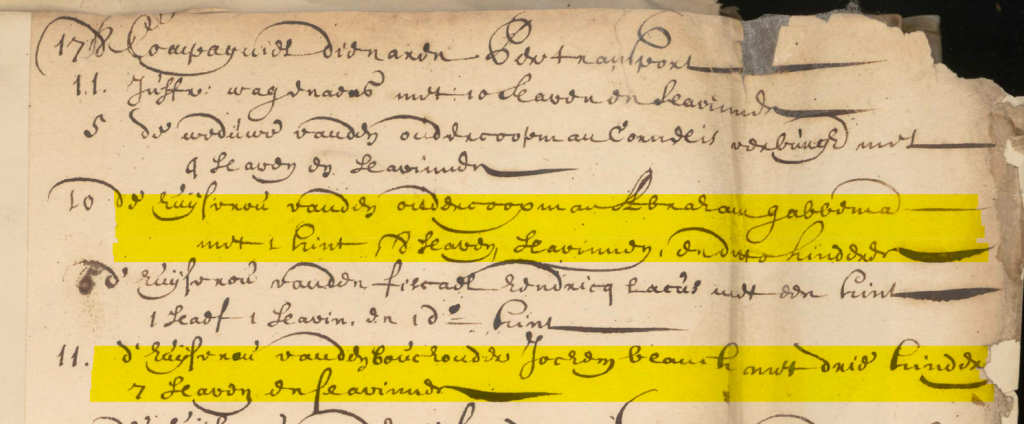 178 Compagniës dienaren Per transport
11. Juffr: wagenaers met 10 slaven en slavinnen
5 de weduwe vanden ondercoopman Cornelis verburgh met
4 slaven en slavinnen
10 de huijsvrou vanden ondercoopman Abraham gabbema
met 1 kint, 8 slaven, slavinnen, en dito kinderen
d' huijsvrou vanden fiscael hendricq Lacus met een kint
1 slaef 1 slavin, en 1 do kint
11. d' huijsvrou vanden bouchouder Jochem blanck met drie kinder
7 slaven en slavinnen